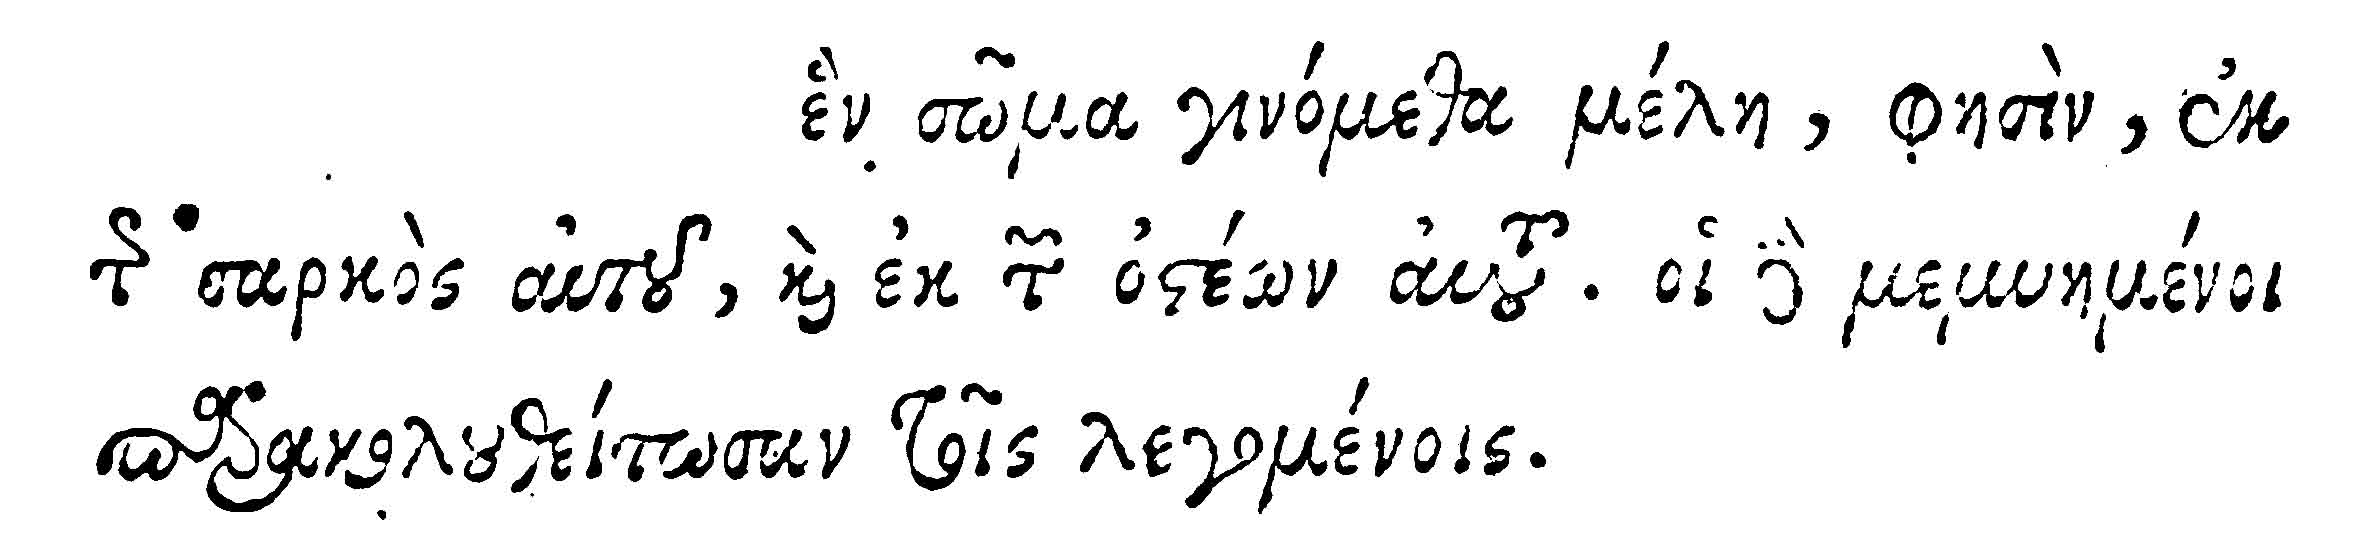 ἓν σῶμα γινόμεθα μέλη, φησὶν, ἐκ
τῆς σαρκὸς αὐτοῦ, καὶ ἐκ τῶν ὀστέων αὐτοῦ. οἱ δὲ μεμυημένοι
παρακολουθείτωσαν τοῖς λεγομένοις.